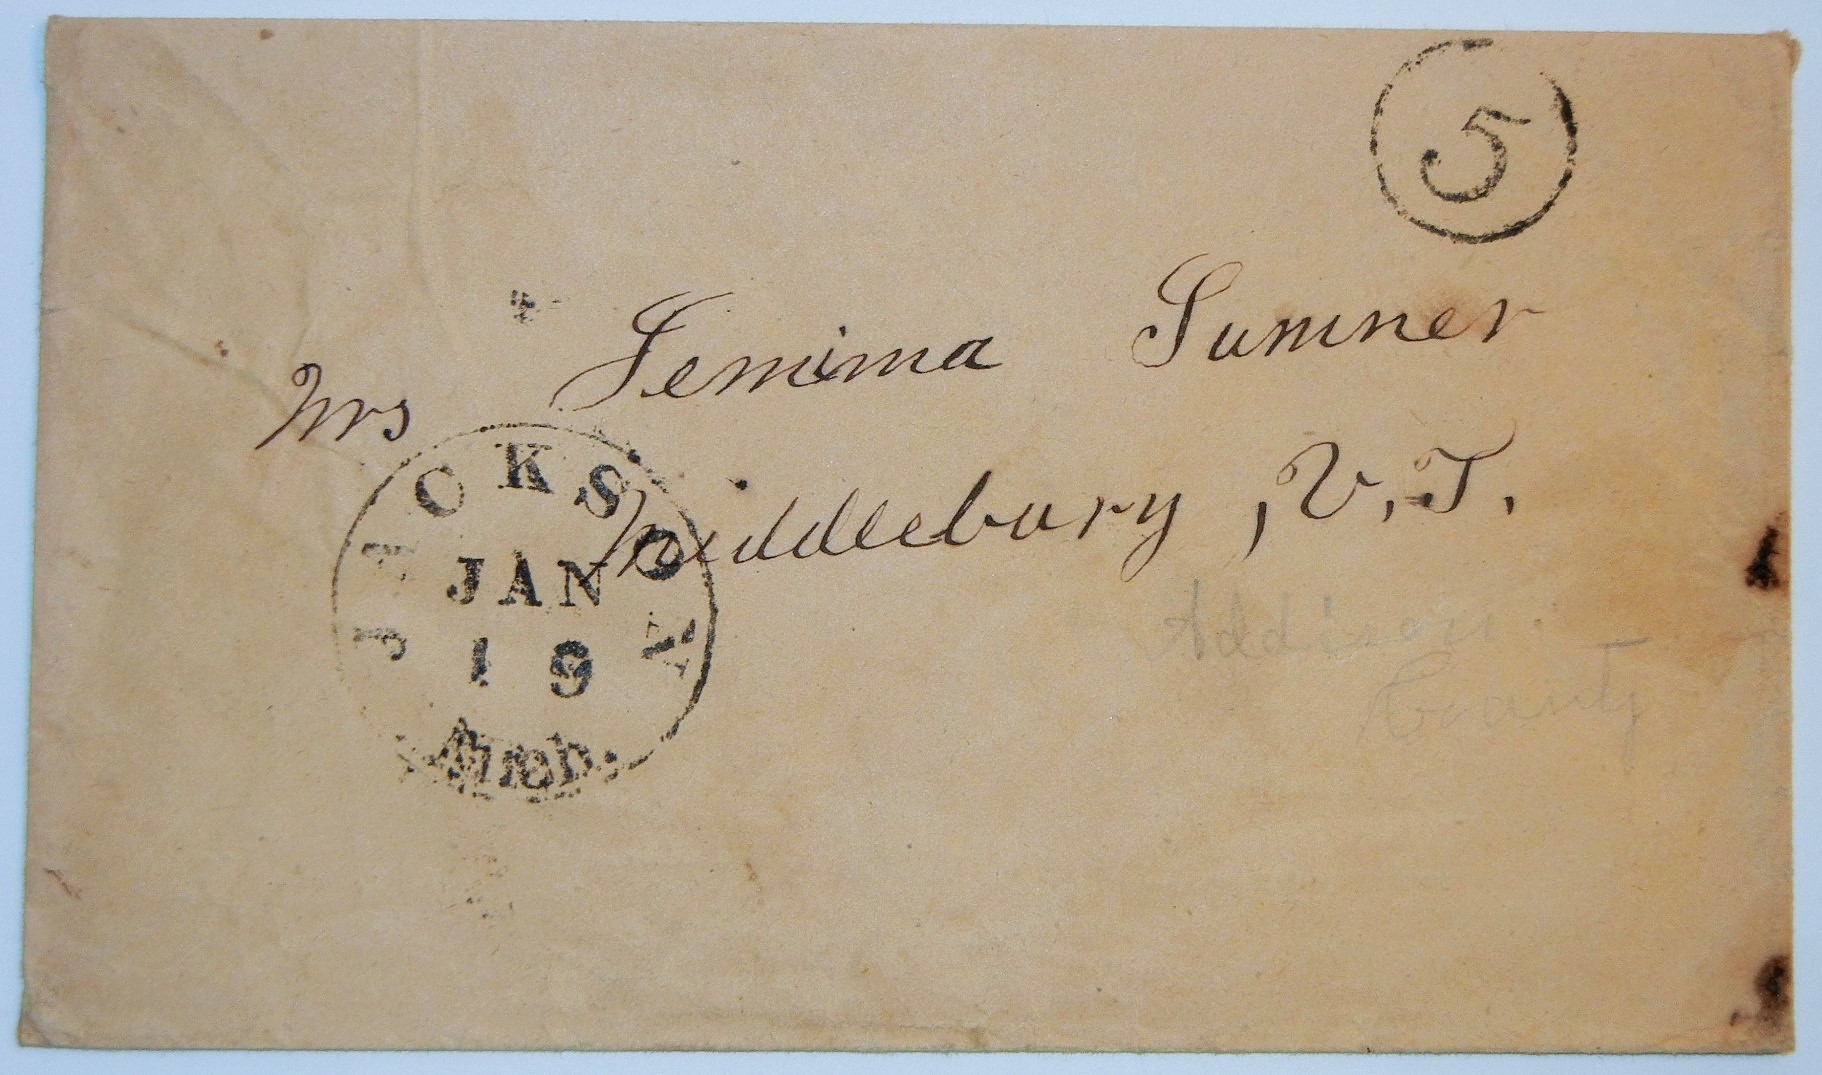 5
Mrs Jemima Sumner
Middlebury, V.T.
Addison
County
JACKSON
JAN
19
Mich.